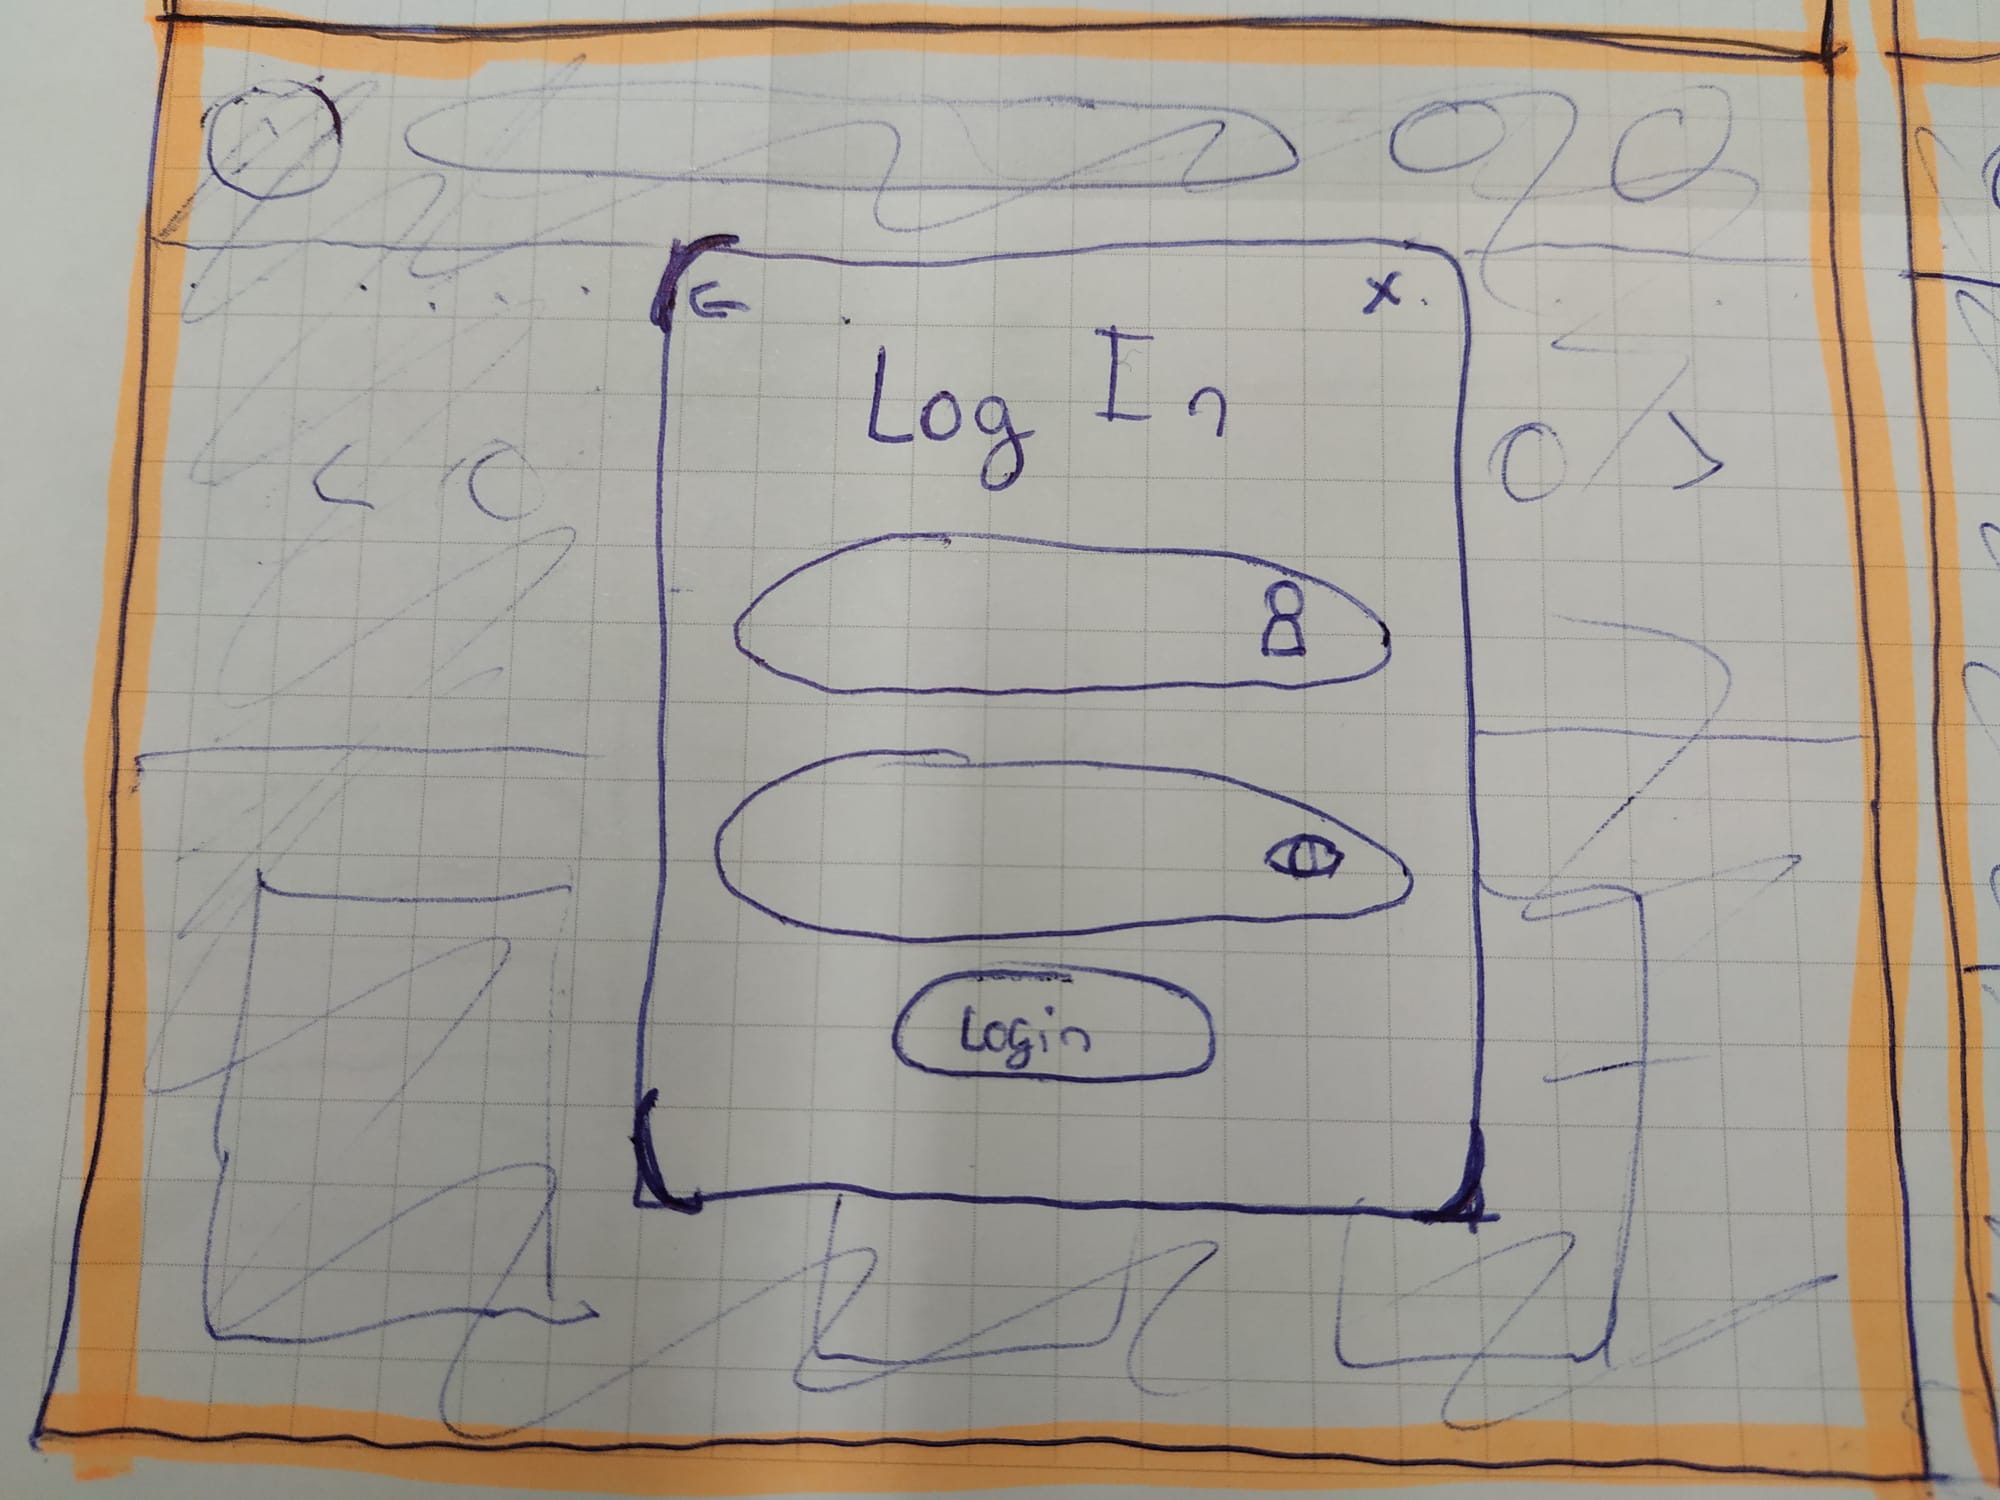 ← X
Log In
Login